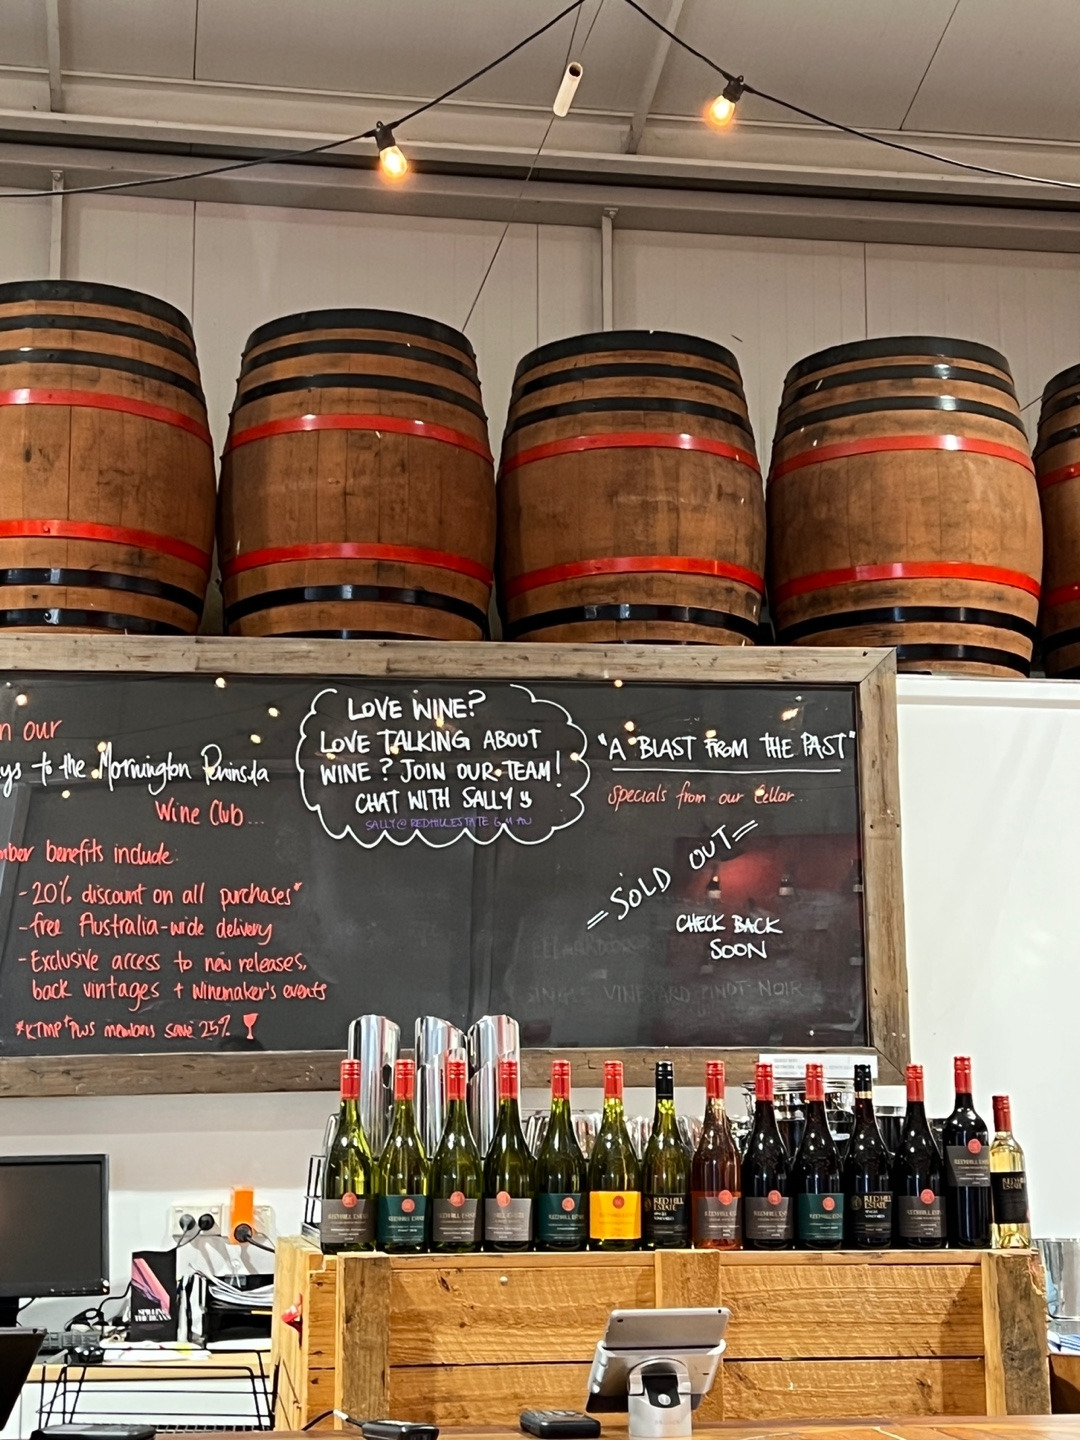 n our
ys to the Mornington Peninsula
Wine Club...
mber benefits include:
- 20% discount on all purchases*
- free Australia-wide delivery
- Exclusive access to new releases,
back vintages + winemaker's events
*KTMP+ plus members save 25%
LOVE WINE?
LOVE TALKING ABOUT
WINE? JOIN OUR TEAM!
CHAT WITH SALLY
"A BLAST FROM THE PAST"
Specials from our Cellar...
= SOLD OUT =
CHECK BACK
SOON
SINGLE VINEYARD PINOT NOIR
RED HILL
ESTATE
RED HILL
ESTATE
SPILLING
THE BEANS